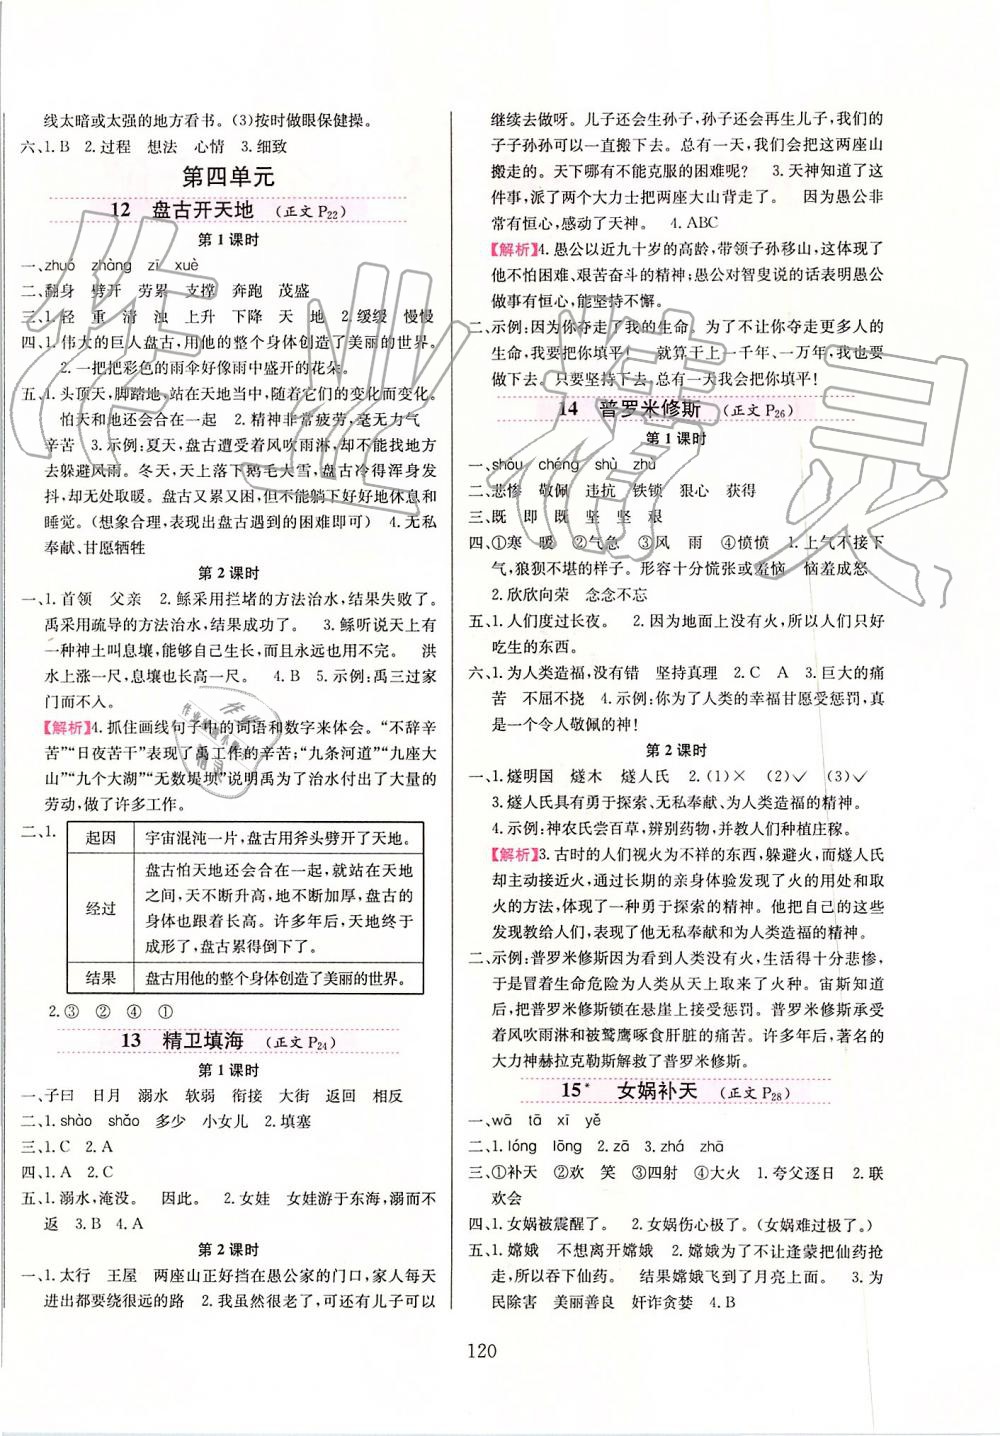 线太暗或太强的地方看书。(3)按时做眼保健操。
六、1.B 2.过程 想法 心情 3.细致
第四单元
12 盘古开天地 (正文 P22)
第 1 课时
一、zhuó zhàng zī xuè
二、翻身 劈开 劳累 支撑 奔跑 茂盛
三、1.轻 重 清 浊 上升 下降 天 地 2.缓缓 慢慢
四、1.伟大的巨人盘古,用他的整个身体创造了美丽的世界。
2.一把把彩色的雨伞好像雨中盛开的花朵。
五、1.头顶天,脚踏地,站在天地当中,随着它们的变化而变化。
怕天和地还会合在一起 2.精神非常疲劳,毫无力气
辛苦 3.示例:夏天,盘古遭受着风吹雨淋,却无处可
去躲避风雨。冬天,天上落下鹅毛大雪,盘古冷得浑身发
抖,却无处取暖。盘古又累又困,但不能躺下好好地休息和
睡觉。(想象合理,表现出盘古遇到的困难即可) 4.无私
奉献、甘愿牺牲
第 2 课时
一、1.首领 父亲 2.鲧采用拦堵的方法治水,结果失败了。
禹采用疏导的方法治水,结果成功了。 3.鲧听说天庭上有
一种神土叫息壤,它能够自己生长,而且永远用不完。 洪
水上涨一尺,息壤也长高一尺。 4.B 5.示例:禹三过家
门而不入。
【解析】4.抓住画线句子中的词语和数字来体会。“不辞辛
苦”“日夜苦干”表现了禹工作的辛苦;“九条河道”“九座大
山”“九个大湖”“无数堤坝”说明禹为了治水付出了大量的
劳动,做了许多工作。
二、1.
起因 宇宙混沌一片,盘古用斧头劈开了天地。
经过 盘古怕天地还会合在一起,就站在天地之
间,天不断升高,地不断加厚,盘古的
身体也跟着长高。许多年后,天地终于
成形了,盘古累得倒下了。
结果 盘古用他的整个身体创造了美丽的世界。
2.③ ② ④ ①
13 精卫填海 (正文 P24)
第 1 课时
一、子曰 日月 溺水 软弱 衔接 大街 返回 相反
二、1.shào shǎo 多少 小女儿 2.填塞
三、1.C 2.A
四、1.A 2.C
五、1.溺水,淹没。 因此。 2.女娃 女娃游于东海,溺而不
返 3.B 4.A
第 2 课时
一、1.太行 王屋 两座山正好挡在愚公家的门口,家人每天
进出都要绕很远的路 2.我虽然很老了,可还有儿子可以
继续去做呀。儿子还会生孙子,孙子还会再生儿子,我们的
子子孙孙可以一直搬下去。总有一天我们会把这两座山
搬走的。天下哪有不能克服的困难呢? 3.天神知道了这
件事,派了两个大力士把两座大山背走了。 因为愚公非
常有恒心,感动了天神。 4.ABC
【解析】4.愚公以近九十岁的高龄,带领子孙移山,这体现了
他不怕困难、艰苦奋斗的精神;愚公对智叟说的话表明愚公
做事有恒心,能坚持不懈。
二、示例:因为你夺走了我的生命。为了不让你夺走更多人的
生命,我要把你填平! 就算干上一千年、一万年,我也要
做下去。只要坚持下去,总有一天我会把你填平!
14 普罗米修斯 (正文 P26)
第 1 课时
一、shòu chéng shù zhù
二、悲惨 敬佩 违抗 铁锁 狠心 获得
三、既 即 既 坚 坚 艰
四、①寒 暖 ②气急 ③风 雨 ④愤愤 1.上气不接下
气,狼狈不堪的样子。形容十分慌张或羞恼 恼羞成怒
2.欣欣向荣 念念不忘
五、1.人们度过长夜。 2.因为地面上没有火,所以人们只好
吃生的东西。
六、1.为人类造福,没有错 坚持真理 2.C A 3.巨大的痛
苦 不屈不挠 4.示例:你为了人类的幸福甘愿受惩罚,真
是一个令人敬佩的神!
第 2 课时
一、1.燧明国 燧木 燧人氏 2.(1)× (2)✓ (3)✓
3.燧人氏具有勇于探索、无私奉献、为人类造福的精神。
4.示例:神农氏尝百草,辨别药物,并教人们种植庄稼。
【解析】3.古时的人们视火为不祥的东西,躲避火,而燧人氏
却主动接近火,通过长期的亲身体验发现了火的用处和取
火的方法,体现了一种勇于探索的精神。他把自己的这些
发现教给人们,表现了他无私奉献和为人类造福的精神。
二、示例:普罗米修斯因为看到人类没有火,生活得十分悲惨,
于是冒着生命危险为人类从天上取来了火。宙斯知道
后,把普罗米修斯锁在悬崖上接受惩罚。普罗米修斯承受
着风吹雨淋和被鹫鹰啄食肝脏的痛苦。许多年后,著名的
大力神赫拉克勒斯解救了普罗米修斯。
15* 女娲补天 (正文 P28)
一、wā tā xī yě
二、1.lóng lōng 2.zā 3.zhá zhā
三、①补天 ②欢 笑 ③四射 ④大火 1.夸父逐日 2.联
欢会
四、1.女娲被震醒了。 2.女娲伤心极了。(女娲难过极了。)
五、1.嫦娥 不想离开嫦娥 2.嫦娥为了不让逢蒙把仙药抢
走,所以吞下仙药。 结果嫦娥飞到了月亮上面。 3.为
民除害 美丽善良 奸诈贪婪 4.B
120
作业精灵